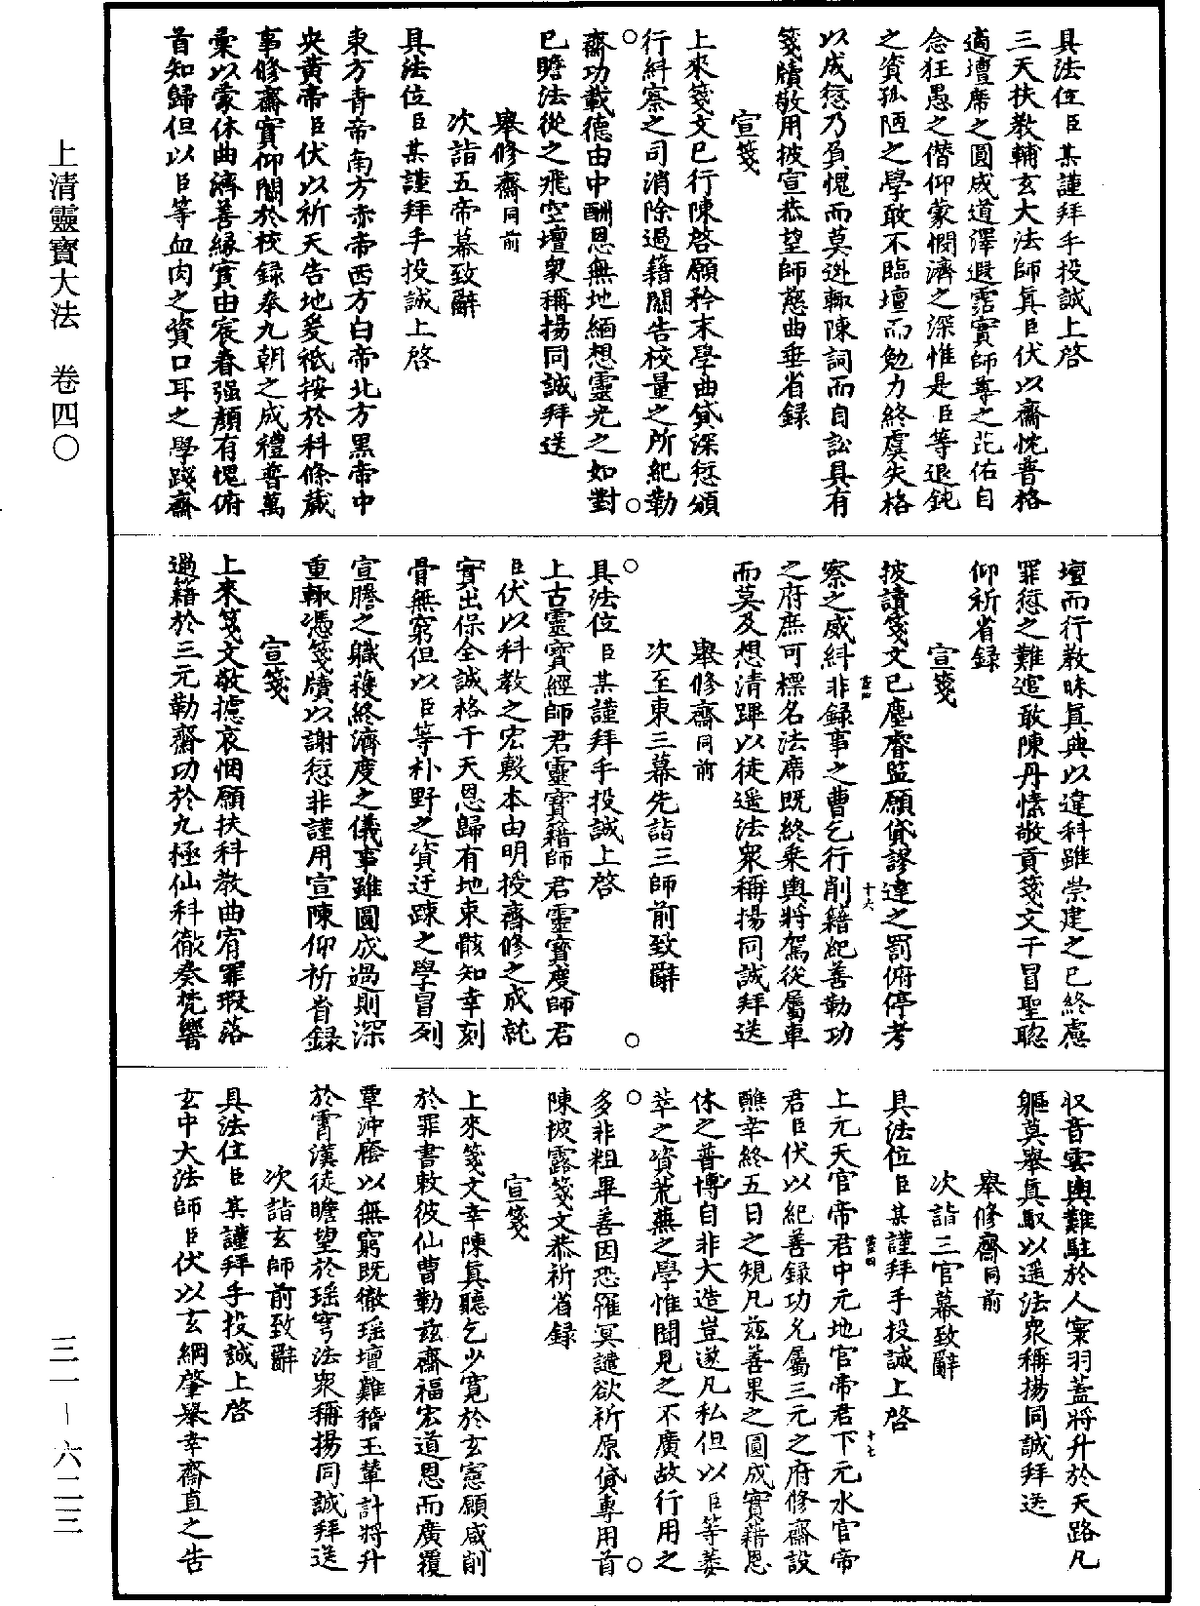 上清靈寶大法　卷四〇
三一－六二三
具法位臣某謹拜手投誠上啓
三天扶教輔玄大法師眞臣伏以齋忱普格
適壇席之圓成道澤遐霑實師尊之芘佑自
念狂愚之僭仰蒙憫濟之深惟是臣等退鈍
之資孤陋之學敢不臨壇而勉力終虞失格
以成愆乃負愧而莫逃輒陳詞而自訟具有
箋牘敬用披宣恭望師慈曲垂省録
宣箋
上來箋文已行陳啓願矜末學曲貸深愆頒
行糾察之司消除過籍關告校量之所紀勒
齋功載德由中酬恩無地緬想靈光之如對
已瞻法從之飛空壇衆稱揚同誠拜送
舉修齋同前
次詣五帝幕致辭
具法位臣某謹拜手投誠上啓
東方青帝南方赤帝西方白帝北方黑帝中
央黄帝臣伏以祈天告地爰祗按於科條蕆
事修齋實仰關於校録奉九朝之成禮普萬
彙以蒙休曲濟善縁實由宸眷强顔有愧俯
首知歸但以臣等血肉之資口耳之學踐齋
壇而行教昧眞典以違科雖崇建之已終慮
罪愆之難逭敢陳丹愫敬貢箋文干冒聖聦
仰祈省録
宣箋
披讀箋文已塵睿監願貸謬違之罰俯停考
察之威糾非録事之曹乞行削籍紀善勒功
之府庶可標名法席既終乗輿將駕從屬車
而莫及想清蹕以徒遥法衆稱揚同誠拜送
舉修齋同前
次至東三幕先詣三師前致辭
具法位臣某謹拜手投誠上啓
上古靈寶經師君靈寶籍師君靈寶度師君
臣伏以科教之宏敷本由明授齋修之成就
實出保全誠格于天恩歸有地束骸知幸刻
骨無窮但以臣等朴野之資迂踈之學冒列
宣謄之職獲終濟度之儀事雖圓成過則深
重輒憑箋牘以謝愆非謹用宣陳仰祈省録
宣箋
上來箋文敬攄哀悃願扶科教曲宥罪瑕落
過籍於三元勒齋功於九極仙科徹奏梵響
収音雲輿難駐於人寰羽蓋將升於天路凡
軀莫舉眞馭以遥法衆稱揚同誠拜送
舉修齋同前
次詣三官幕致辭
具法位臣某謹拜手投誠上啓
上元天官帝君中元地官帝君下元水官帝
君臣伏以紀善録功允屬三元之府修齋設
醮幸終五日之規凡茲善果之圓成實籍恩
休之普博自非大造豈遂凡私但以臣等萎
萃之資荒蕪之學惟聞見之不廣故行用之
多非粗畢善因恐罹冥譴欲祈原貸專用首
陳披露箋文恭祈省録
宣箋
上來箋文幸陳眞聽乞少寛於玄憲願咸削
於罪書敕彼仙曹勒茲齋福宏道恩而廣覆
覃沖廕以無窮既徹瑶壇難稽玉輦計將升
於霄漢徒瞻望於瑶穹法衆稱揚同誠拜送
次詣玄師前致辭
具法位臣某謹拜手投誠上啓
玄中大法師臣伏以玄綱肇舉幸齋直之告
十六
十七